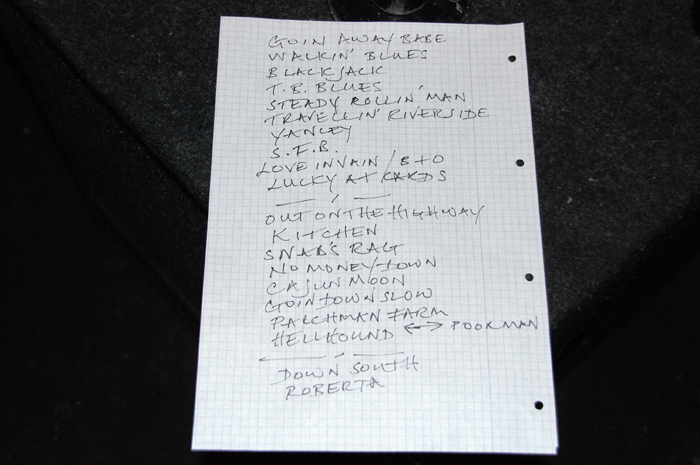 GOIN AWAY BABE
WALKIN' BLUES
BLACKJACK
T.B. BLUES
STEADY ROLLIN' MAN
TRAVELLIN' RIVERSIDE
YANLEY
S.F.B.
LOVE IN VAIN / B+O
LUCKY AT CARDS
OUT ON THE HIGHWAY
KITCHEN
SNAB'S RAG
NO MONEY DOWN
CAJUN MOON
GOIN DOWN SLOW
PARCHMAN FARM
HELLHOUND ↔ POOR MAN
DOWN SOUTH
ROBERTA